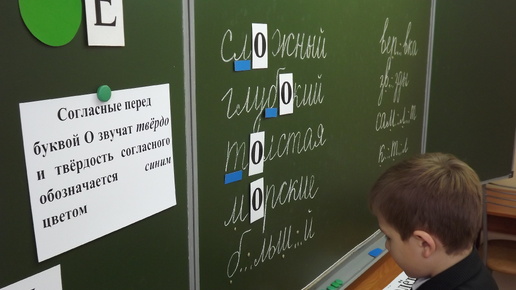 Е
Согласные перед
буквой О звучат твёрдо
и твёрдость согласного
обозначается синим
цветом
сложный
глубокий
толстая
морские
б..льш..й
вер..вка
зв..зды
сам..л..т
к..т..л